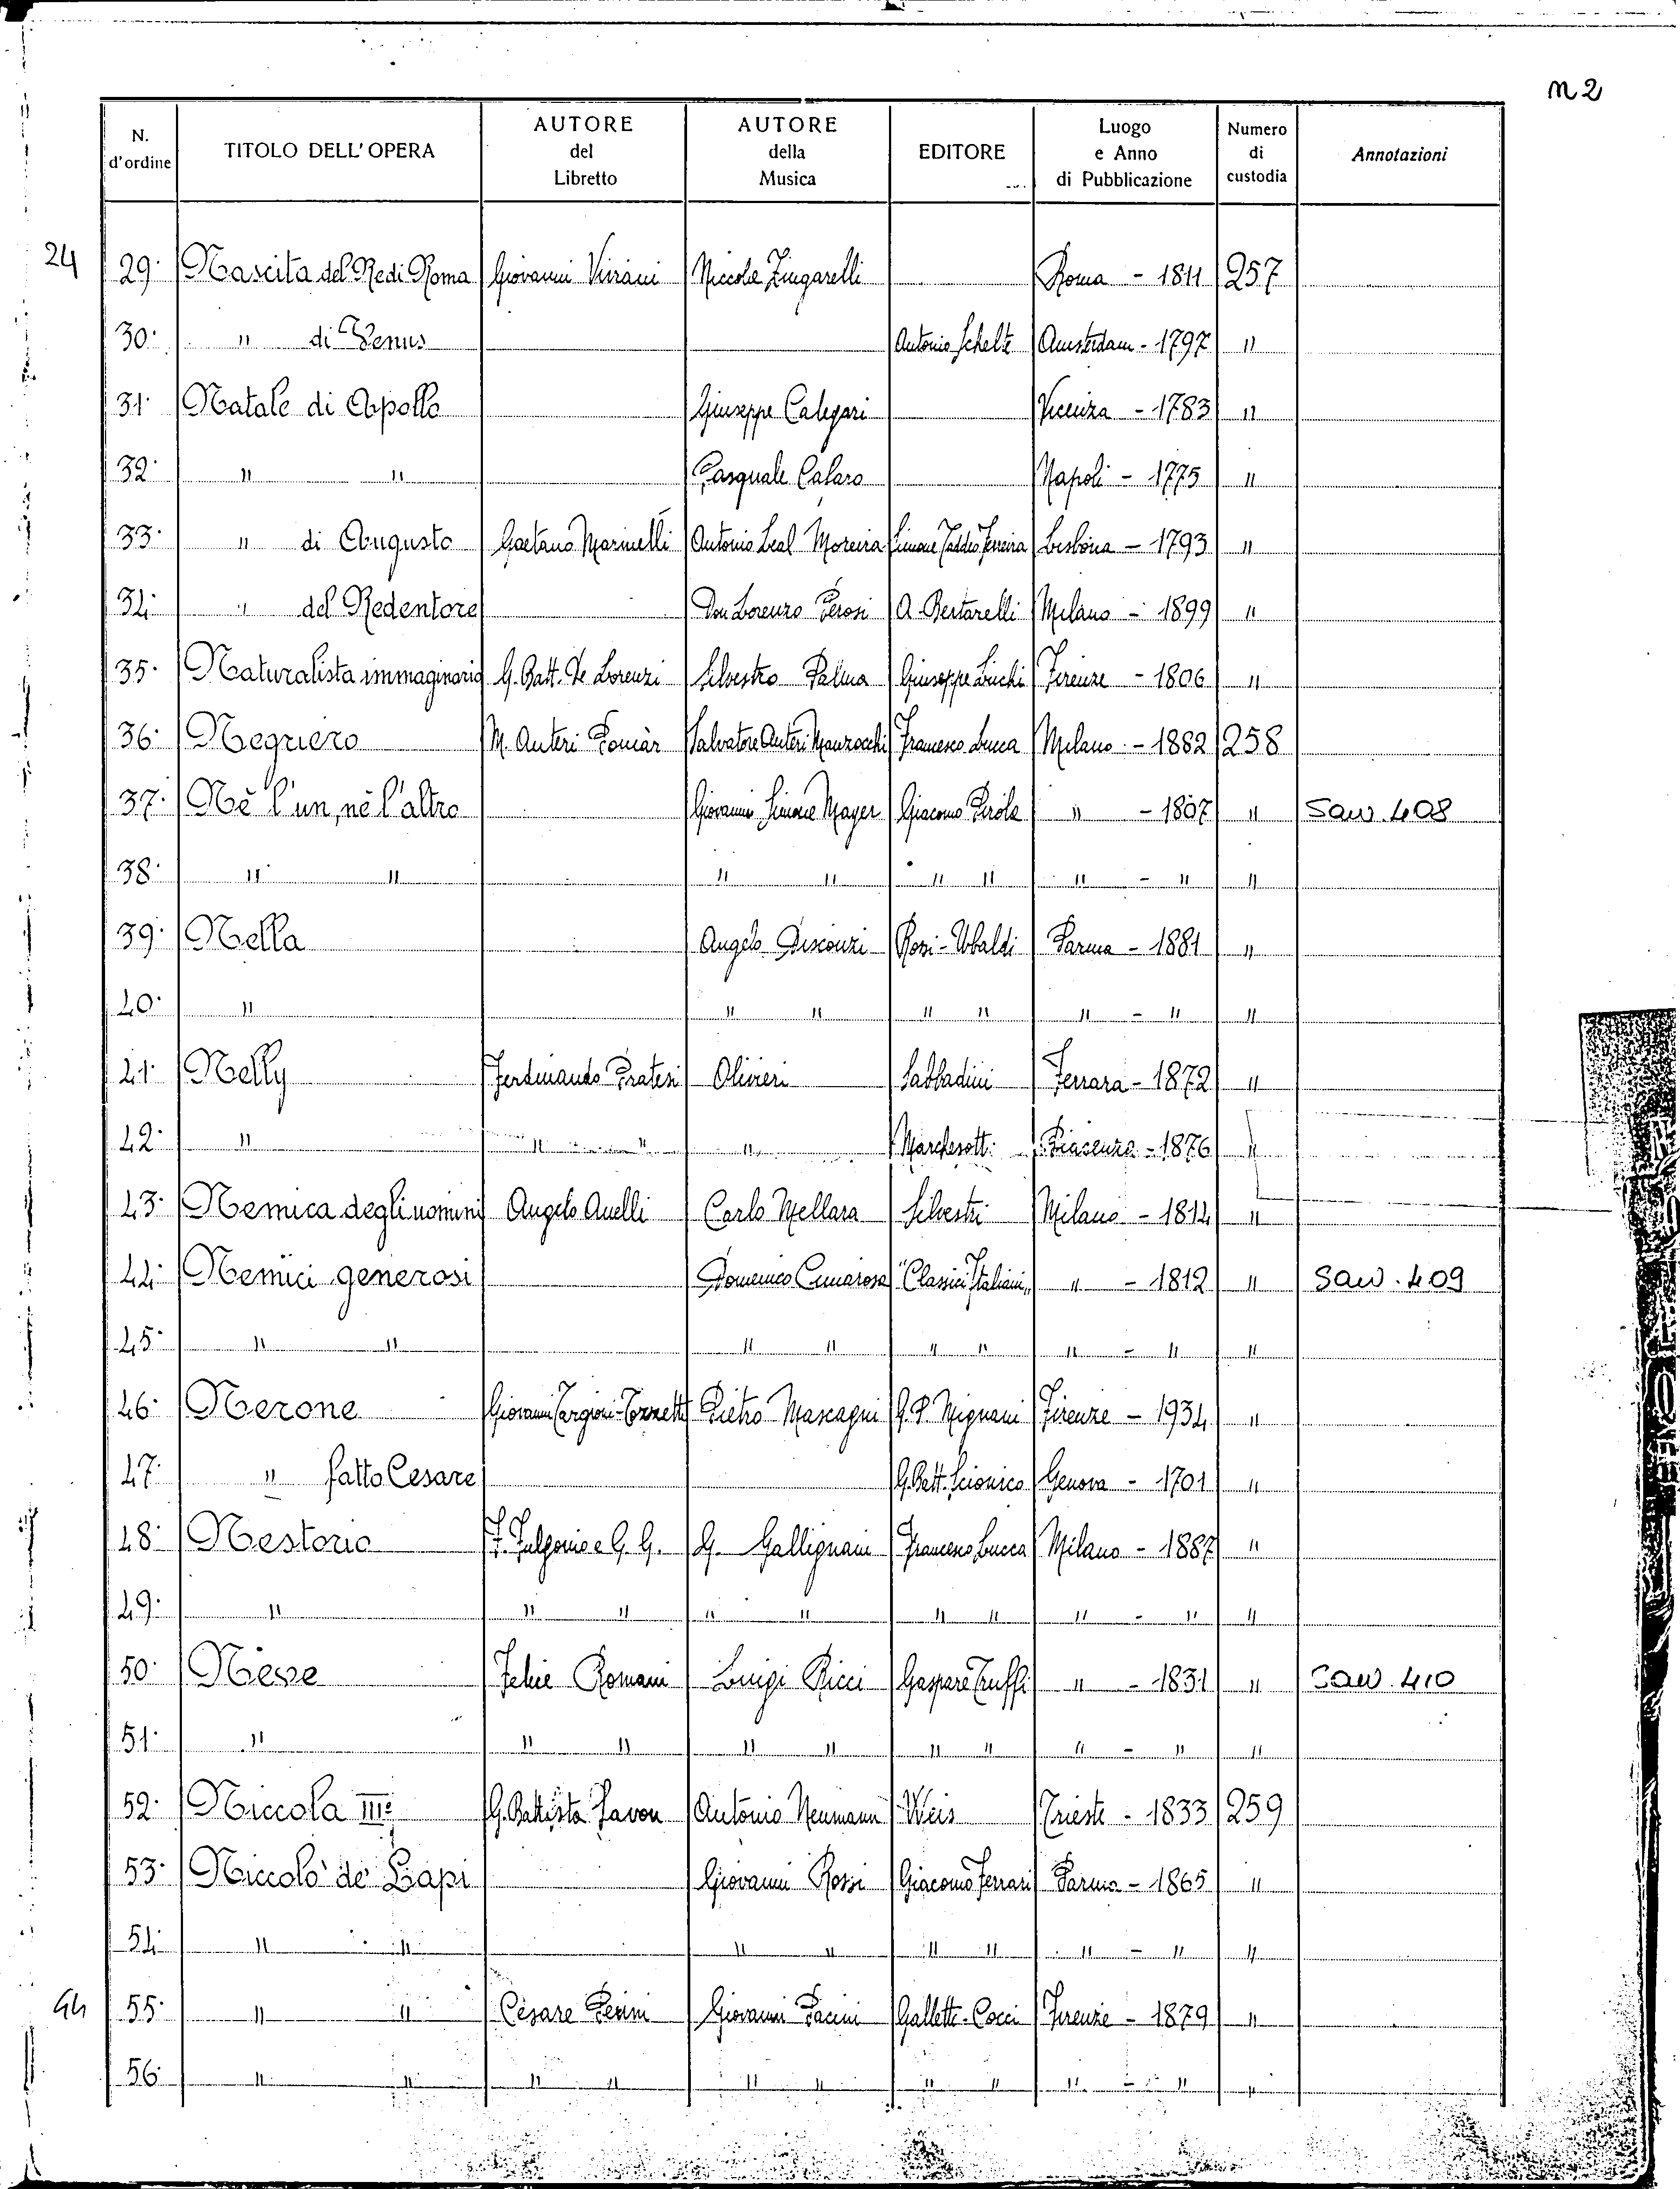 n 2
N. d'ordine TITOLO DELL'OPERA AUTORE del Libretto AUTORE della Musica EDITORE Luogo e Anno di Pubblicazione Numero di custodia Annotazioni
24 29. Nascita del Re di Roma Giovanni Niccola Zingarelli Roma - 1811 257
30. " di Venus Antonio Schelte Amsterdam - 1797 "
31. Natale di Apollo Giuseppe Calegari Vicenza - 1783 "
32. " " Pasquale Cafaro Napoli - 1775 "
33. " di Augusto Gaetano Marinelli Antonio Leal Moreira Simone Taddeo Ferreira Lisbona - 1793 "
34. " del Redentore Don Lorenzo Perosi A. Bertarelli Milano - 1899 "
35. Naturalista immaginario G. Batt. De Lorenzi Silvestro Palma Giuseppe Luchi Firenze - 1806 "
36. Negriero M. Auteri Pomàr Salvatore Auteri Manzocchi Francesco Lucca Milano - 1882 258
37. Nè l'un, nè l'altro Giovanni Simone Mayer Giacomo Pirola " - 1807 " Saw. 408
38. " " " " " " " - " "
39. Nella Angelo Rossi-Ubaldi Parma - 1881 "
40. " " " " " " - " "
41. Nelly Ferdinando Pratesi Olivieri Sabbadini Ferrara - 1872 "
42. " " " " Marchesotti Piacenza - 1876 "
43. Nemica degli uomini Angelo Anelli Carlo Mellara Silvestri Milano - 1814 "
44. Nemici generosi Domenico Cimarosa "Classici Italiani" " - 1812 " Saw. 409
45. " " " " " " " - " "
46. Nerone Giovanni Targioni-Tozzetti Pietro Mascagni G. P. Mignani Firenze - 1934 "
47. " fatto Cesare G. Batt. Scionico Genova - 1701 "
48. Nestorio F. Fulgonio e G. G. G. Gallignani Francesco Lucca Milano - 1887 "
49. " " " " " " " " - " "
50. Neve Felice Romani Luigi Ricci Gaspare Truffi " - 1831 " Saw. 410
51. " " " " " " " " - " "
52. Niccola III° G. Battista Savon Antonio Neumann Weis Trieste - 1833 259
53. Niccolò de' Lapi Giovanni Rossi Giacomo Ferrari Parma - 1865 "
54. " " " " " " " - " "
44 55. " " Cesare Perini Giovanni Pacini Galletti-Cocci Firenze - 1879 "
56. " " " " " " " " " - " "